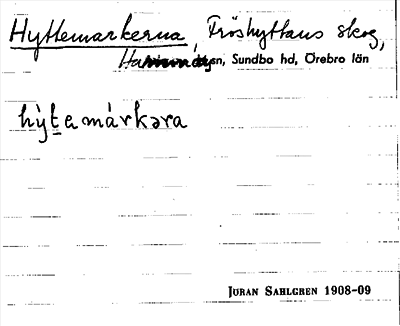 Hyttemarkerna, Fröshyttans skog,
sn, Sundbo hd, Örebro län
hỳt̲a màrkəra
JÖRAN SAHLGREN 1908-09